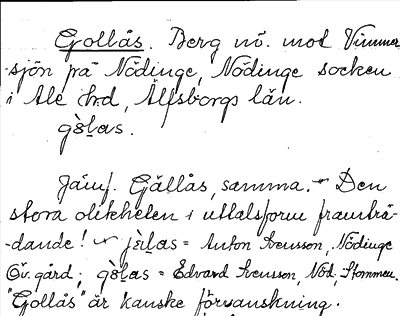 Gollås. Berg nö. mot Vimmer-
sjön på Nödinge, Nödinge socken
i Ale hrd, Älfsborgs län.
gòlas.
Jämf. Gällås, samma. Den
stora olikheten i uttalsform frambrä-
dande! jèlas = Anton Svensson, Nödinge
Öv. gård; gòlas = Edvard Svensson, Nöd. Stommen.
"Gollås" är kanske förvanskning.